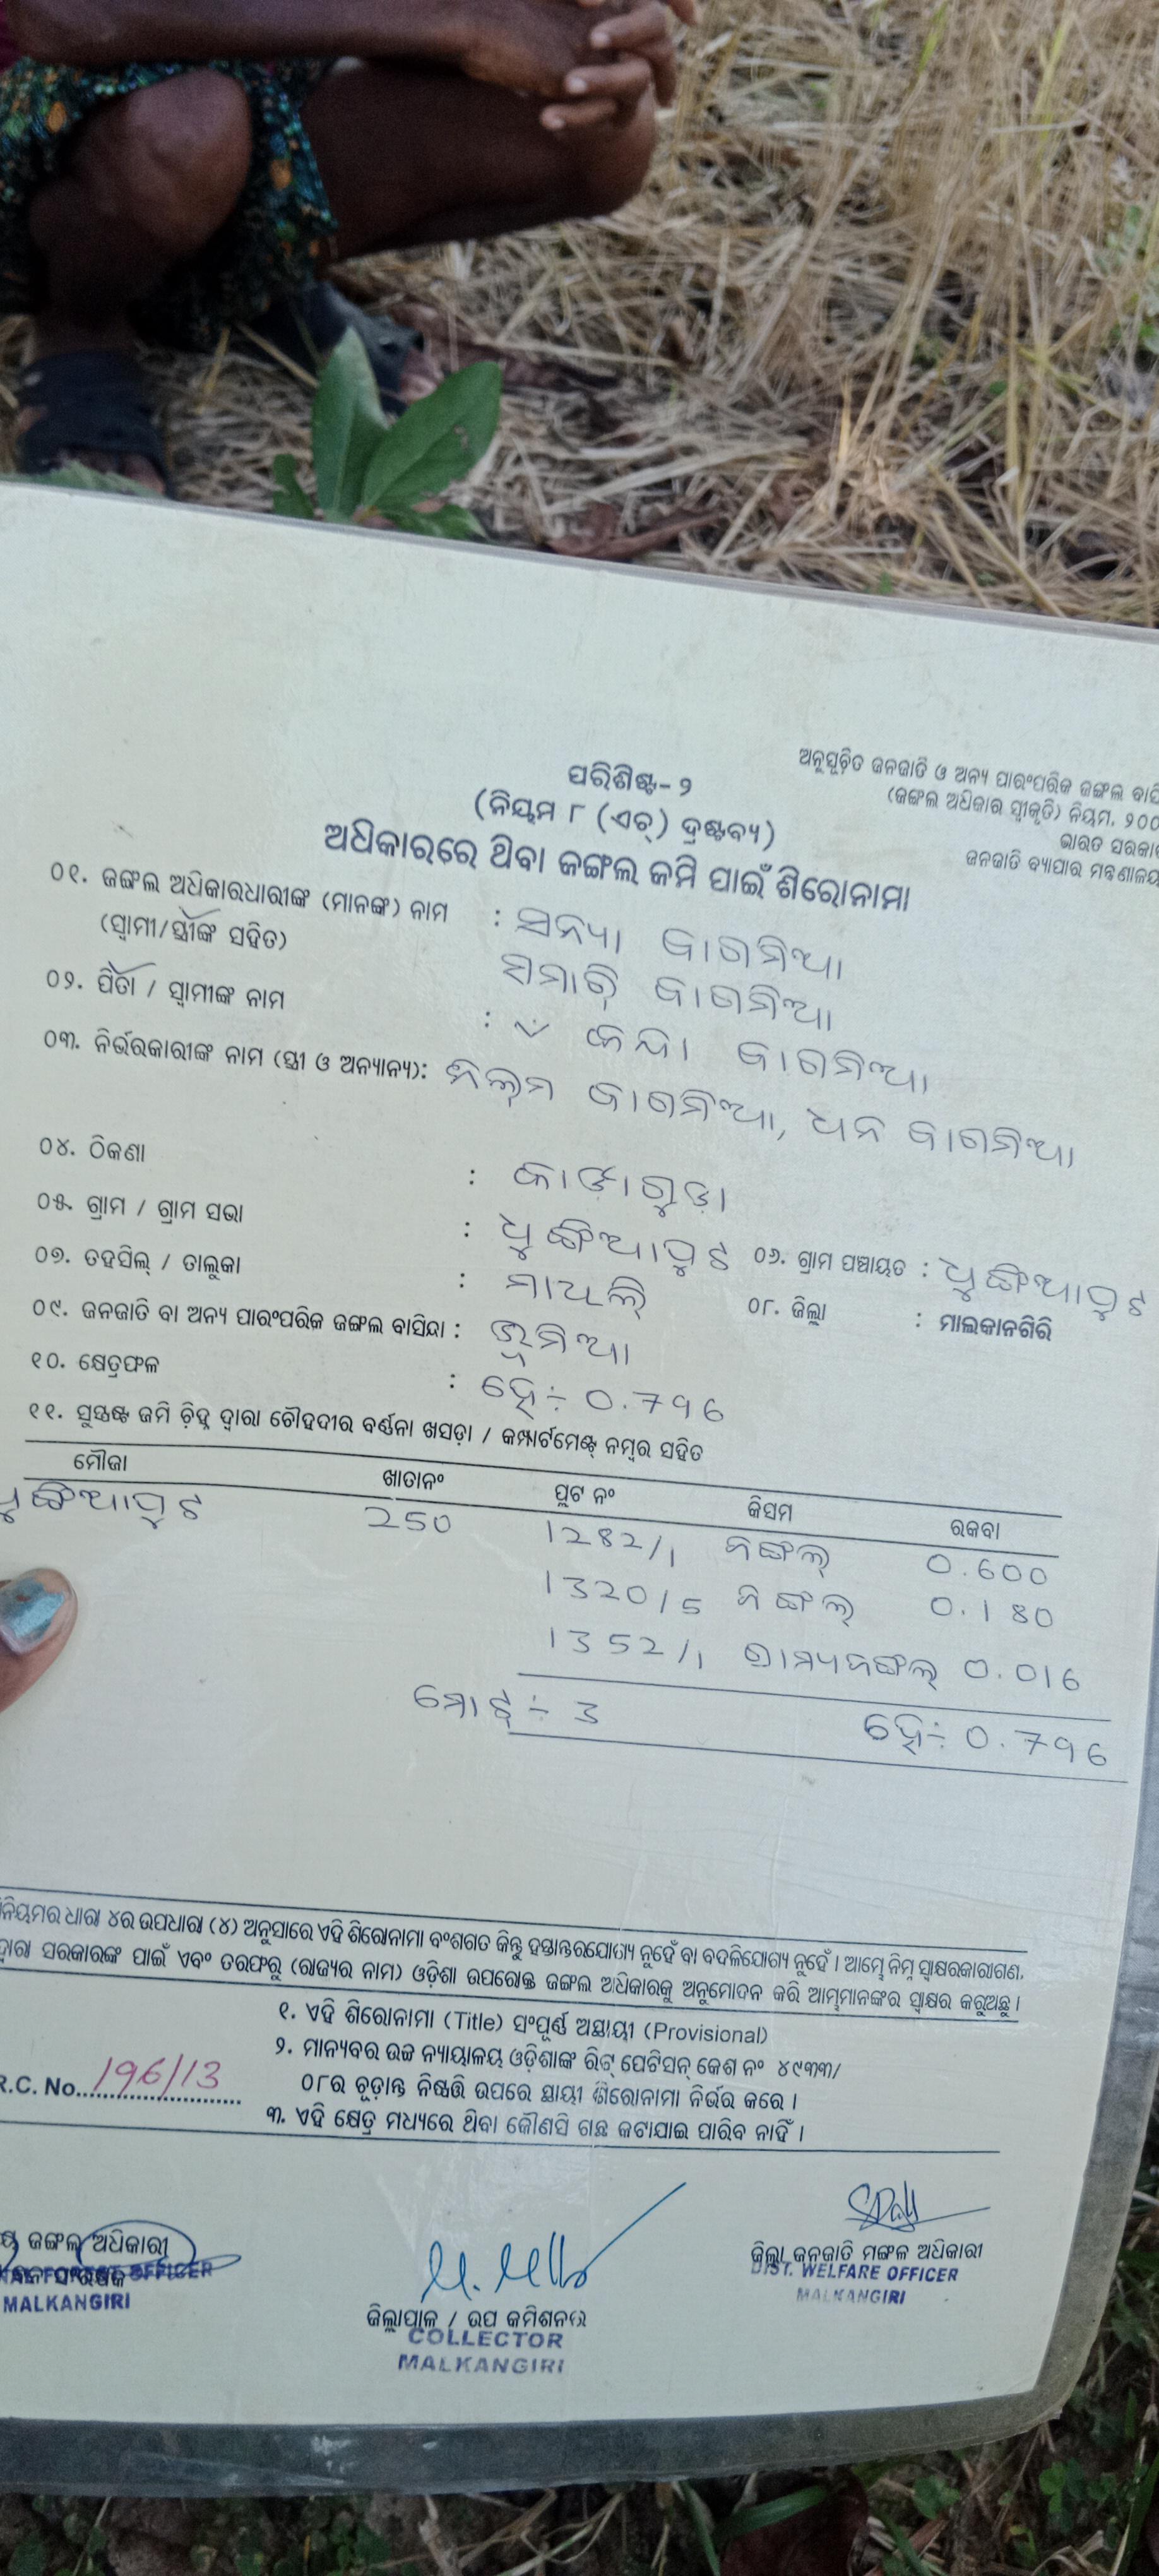 ଅନୁସୂଚିତ ଜନଜାତି ଓ ଅନ୍ୟ ପାରଂପରିକ ଜଙ୍ଗଲ
(ଜଙ୍ଗଲ ଅଧିକାର ସ୍ୱୀକୃତି) ନିୟମ, ୨୦୦
ଭାରତ
ଜନଜାତି ବ୍ୟାପାର ମନ୍ତ୍ରଣାଳୟ
ପରିଶିଷ୍ଟ- ୨
(ନିୟମ ୮ (ଏଚ୍) ଦ୍ରଷ୍ଟବ୍ୟ)
ଅଧିକାରରେ ଥିବା ଜଙ୍ଗଲ ଜମି ପାଇଁ ଶିରୋନାମା
୦୧. ଜଙ୍ଗଲ ଅଧିକାରଧାରୀଙ୍କ (ମାନଙ୍କ) ନାମ : ସନ୍ୟା ବାଗନିଆ
(ସ୍ୱାମୀ/ସ୍ତ୍ରୀଙ୍କ ସହିତ) ସମାରି ବାଗନିଆ
୦୨. ପିତା / ସ୍ୱାମୀଙ୍କ ନାମ : ବାଗନିଆ
୦୩. ନିର୍ଭରକାରୀଙ୍କ ନାମ (ସ୍ତ୍ରୀ ଓ ଅନ୍ୟାନ୍ୟ): ବାଗନିଆ, ଧନ ବାଗନିଆ
୦୪. ଠିକଣା :
୦୫. ଗ୍ରାମ / ଗ୍ରାମ ସଭା : ଧୁଙ୍ଗିଆପୁଟ ୦୬. ଗ୍ରାମ ପଞ୍ଚାୟତ : ଧୁଙ୍ଗିଆପୁଟ
୦୭. ତହସିଲ୍ / ତାଲୁକା : ମାଥିଲି ୦୮. ଜିଲ୍ଲା : ମାଲକାନଗିରି
୦୯. ଜନଜାତି ବା ଅନ୍ୟ ପାରଂପରିକ ଜଙ୍ଗଲ ବାସିନ୍ଦା : ଭୂମିଆ
୧୦. କ୍ଷେତ୍ରଫଳ : ହେ÷ 0.796
୧୧. ସୁସ୍ପଷ୍ଟ ଜମି ଚିହ୍ନ ଦ୍ୱାରା ଚୌହଦୀର ବର୍ଣ୍ଣନା ଖସଡ଼ା / କମ୍ପାର୍ଟମେଣ୍ଟ୍ ନମ୍ବର ସହିତ
ମୌଜା ଖାତାନଂ ପ୍ଲଟ ନଂ କିସମ ରକବା
ଧୁଙ୍ଗିଆପୁଟ 250 1282/1 ଜଙ୍ଗଲ୍ 0.600
1320/5 ଜଙ୍ଗଲ୍ 0.180
1352/1 ଗ୍ରାମ୍ୟଜଙ୍ଗଲ୍ 0.016
ମୋଟ୍ ÷ 3 ହେ÷ 0.796
ନିୟମର ଧାରା ୪ର ଉପଧାରା (୪) ଅନୁସାରେ ଏହି ଶିରୋନାମା ବଂଶଗତ କିନ୍ତୁ ହସ୍ତାନ୍ତରଯୋଗ୍ୟ ନୁହେଁ ବା ବଦଳିଯୋଗ୍ୟ ନୁହେଁ । ଆମ୍ଭେ ନିମ୍ନ ସ୍ୱାକ୍ଷରକାରୀଗଣ,
ଦ୍ୱାରା ସରକାରଙ୍କ ପାଇଁ ଏବଂ ତରଫରୁ (ରାଜ୍ୟର ନାମ) ଓଡ଼ିଶା ଉପରୋକ୍ତ ଜଙ୍ଗଲ ଅଧିକାରକୁ ଅନୁମୋଦନ କରି ଆମ୍ଭମାନଙ୍କର ସ୍ୱାକ୍ଷର କରୁଅଛୁ ।
୧. ଏହି ଶିରୋନାମା (Title) ସଂପୂର୍ଣ୍ଣ ଅସ୍ଥାୟୀ (Provisional)
୨. ମାନ୍ୟବର ଉଚ୍ଚ ନ୍ୟାୟାଳୟ ଓଡ଼ିଶାଙ୍କ ରିଟ୍ ପେଟିସନ୍ କେଶ ନଂ ୪୯୩୩/
୦୮ର ଚୂଡ଼ାନ୍ତ ନିଷ୍ପତ୍ତି ଉପରେ ସ୍ଥାୟୀ ଶିରୋନାମା ନିର୍ଭର କରେ ।
R.C. No. 196/13
୩. ଏହି କ୍ଷେତ୍ର ମଧ୍ୟରେ ଥିବା କୌଣସି ଗଛ କଟାଯାଇ ପାରିବ ନାହିଁ ।
ଜଙ୍ଗଲ ଅଧିକାରୀ
FOREST OFFICER
MALKANGIRI
ଜିଲ୍ଲାପାଳ / ଉପ କମିଶନର
COLLECTOR
MALKANGIRI
ଜିଲ୍ଲା ଜନଜାତି ମଙ୍ଗଳ ଅଧିକାରୀ
DIST. WELFARE OFFICER
MALKANGIRI